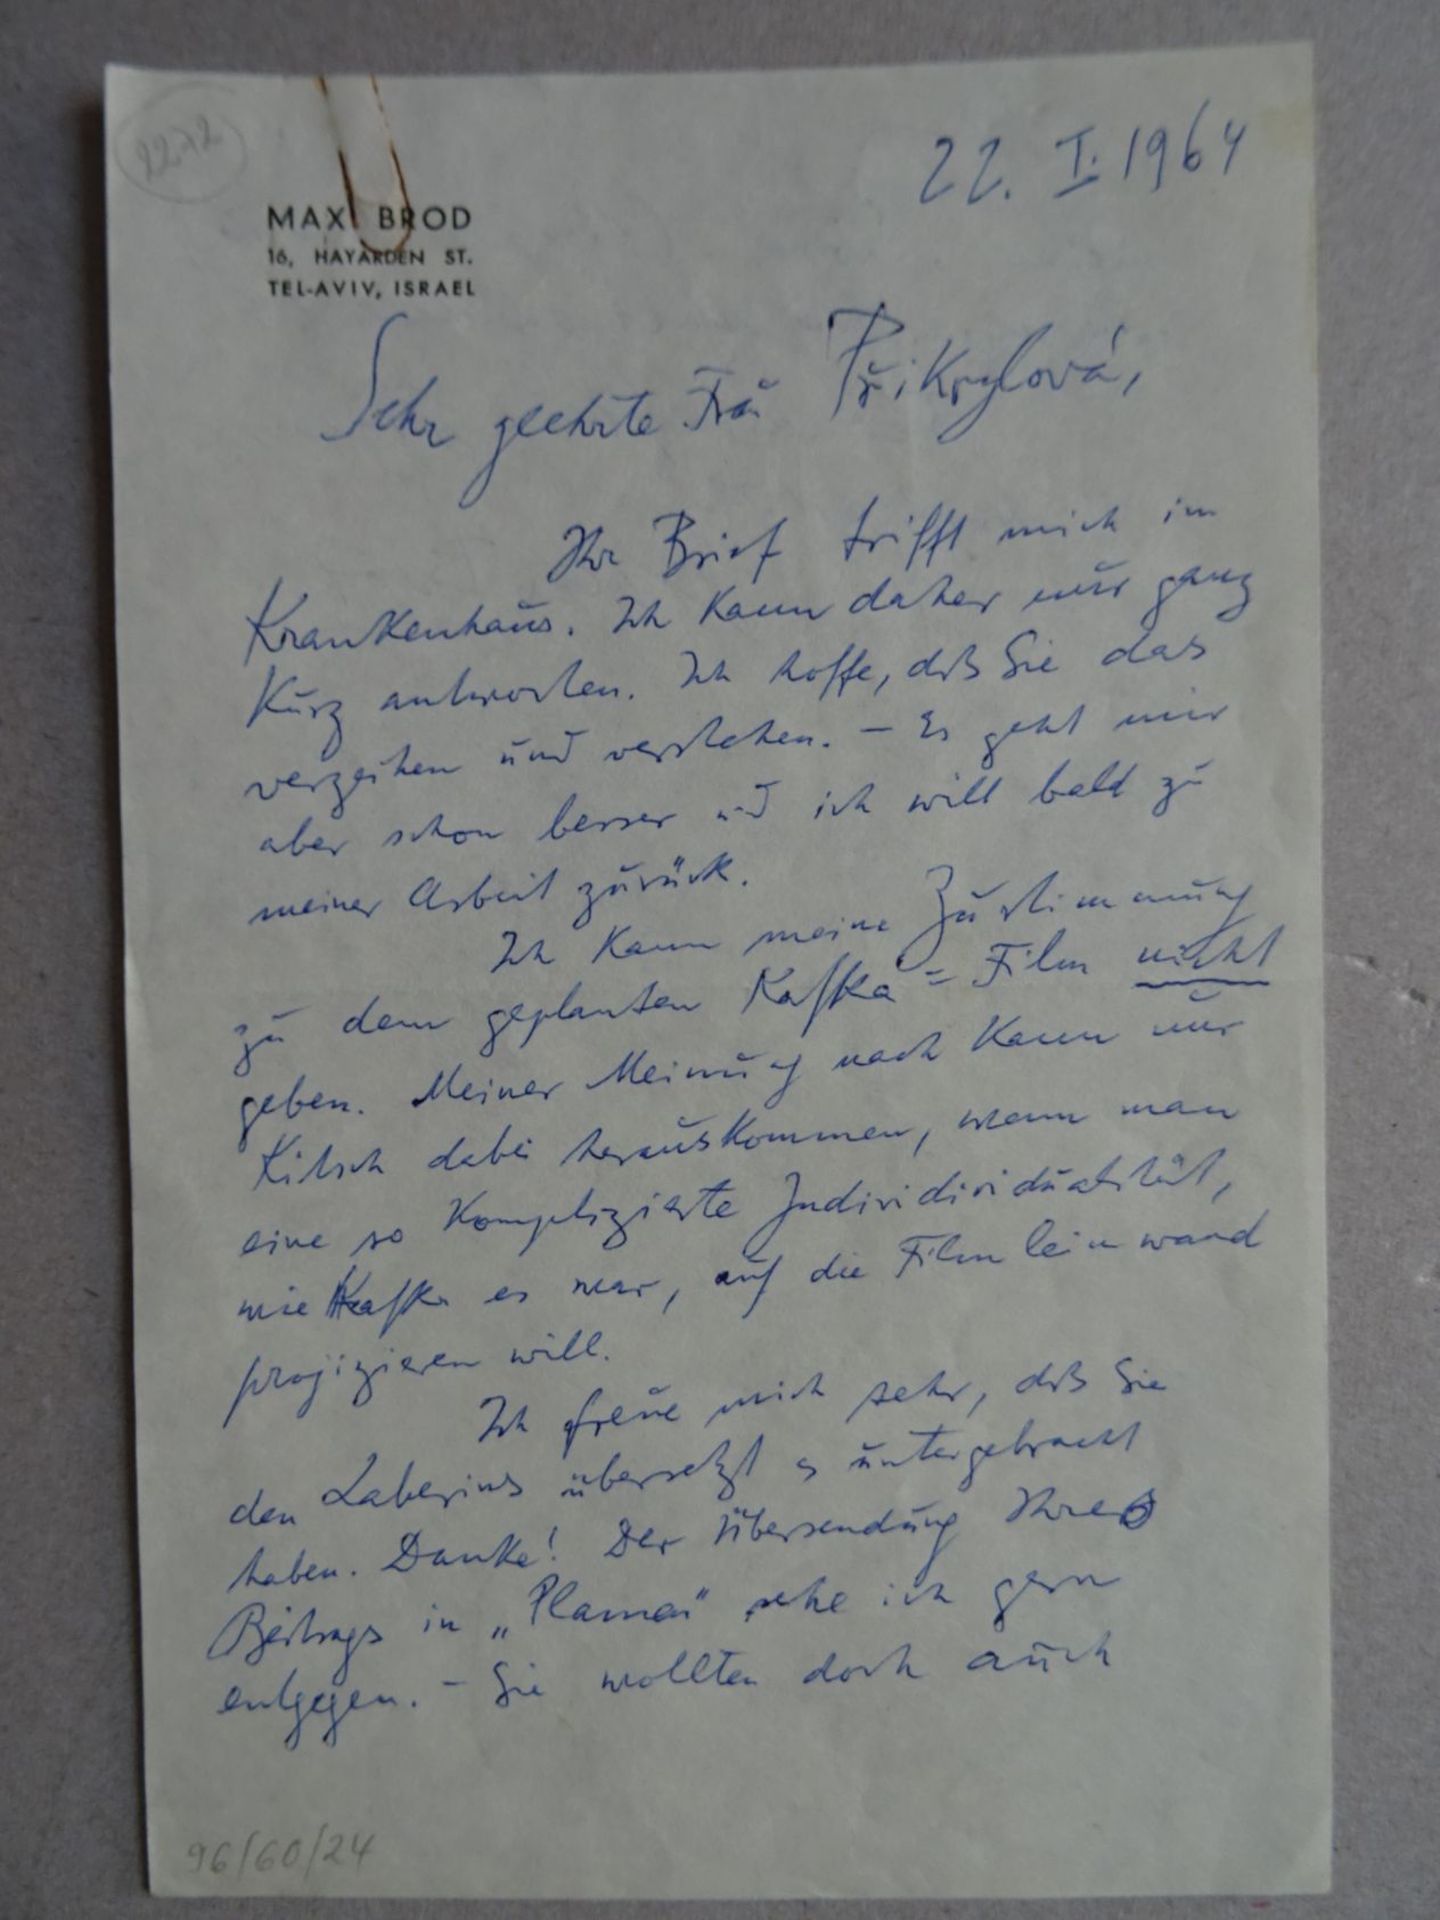 2272
22. I. 1964
MAX BROD
16, HAYARDEN ST.
TEL-AVIV, ISRAEL
Sehr geehrte Frau Přikrylová,
Ihr Brief trifft mich im
Krankenhaus. Ich kann daher nur ganz
kurz antworten. Ich hoffe, daß Sie das
verzeihen und verstehen. – Es geht mir
aber schon besser und ich will bald zu
meiner Arbeit zurück.
Ich kann meine Zustimmung
zu dem geplanten Kafka=Film nicht
geben. Meiner Meinung nach kann nur
Kitsch dabei herauskommen, wenn man
eine so komplizierte Individividualität,
wie Kafka es war, auf die Filmleinwand
projizieren will.
Ich freue mich sehr, daß Sie
den Laberius übersetzt u untergebracht
haben. Danke! Der Übersendung Ihres
Beitrags in „Plamen" sehe ich gern
entgegen. – Sie wollten doch auch
96/60/24